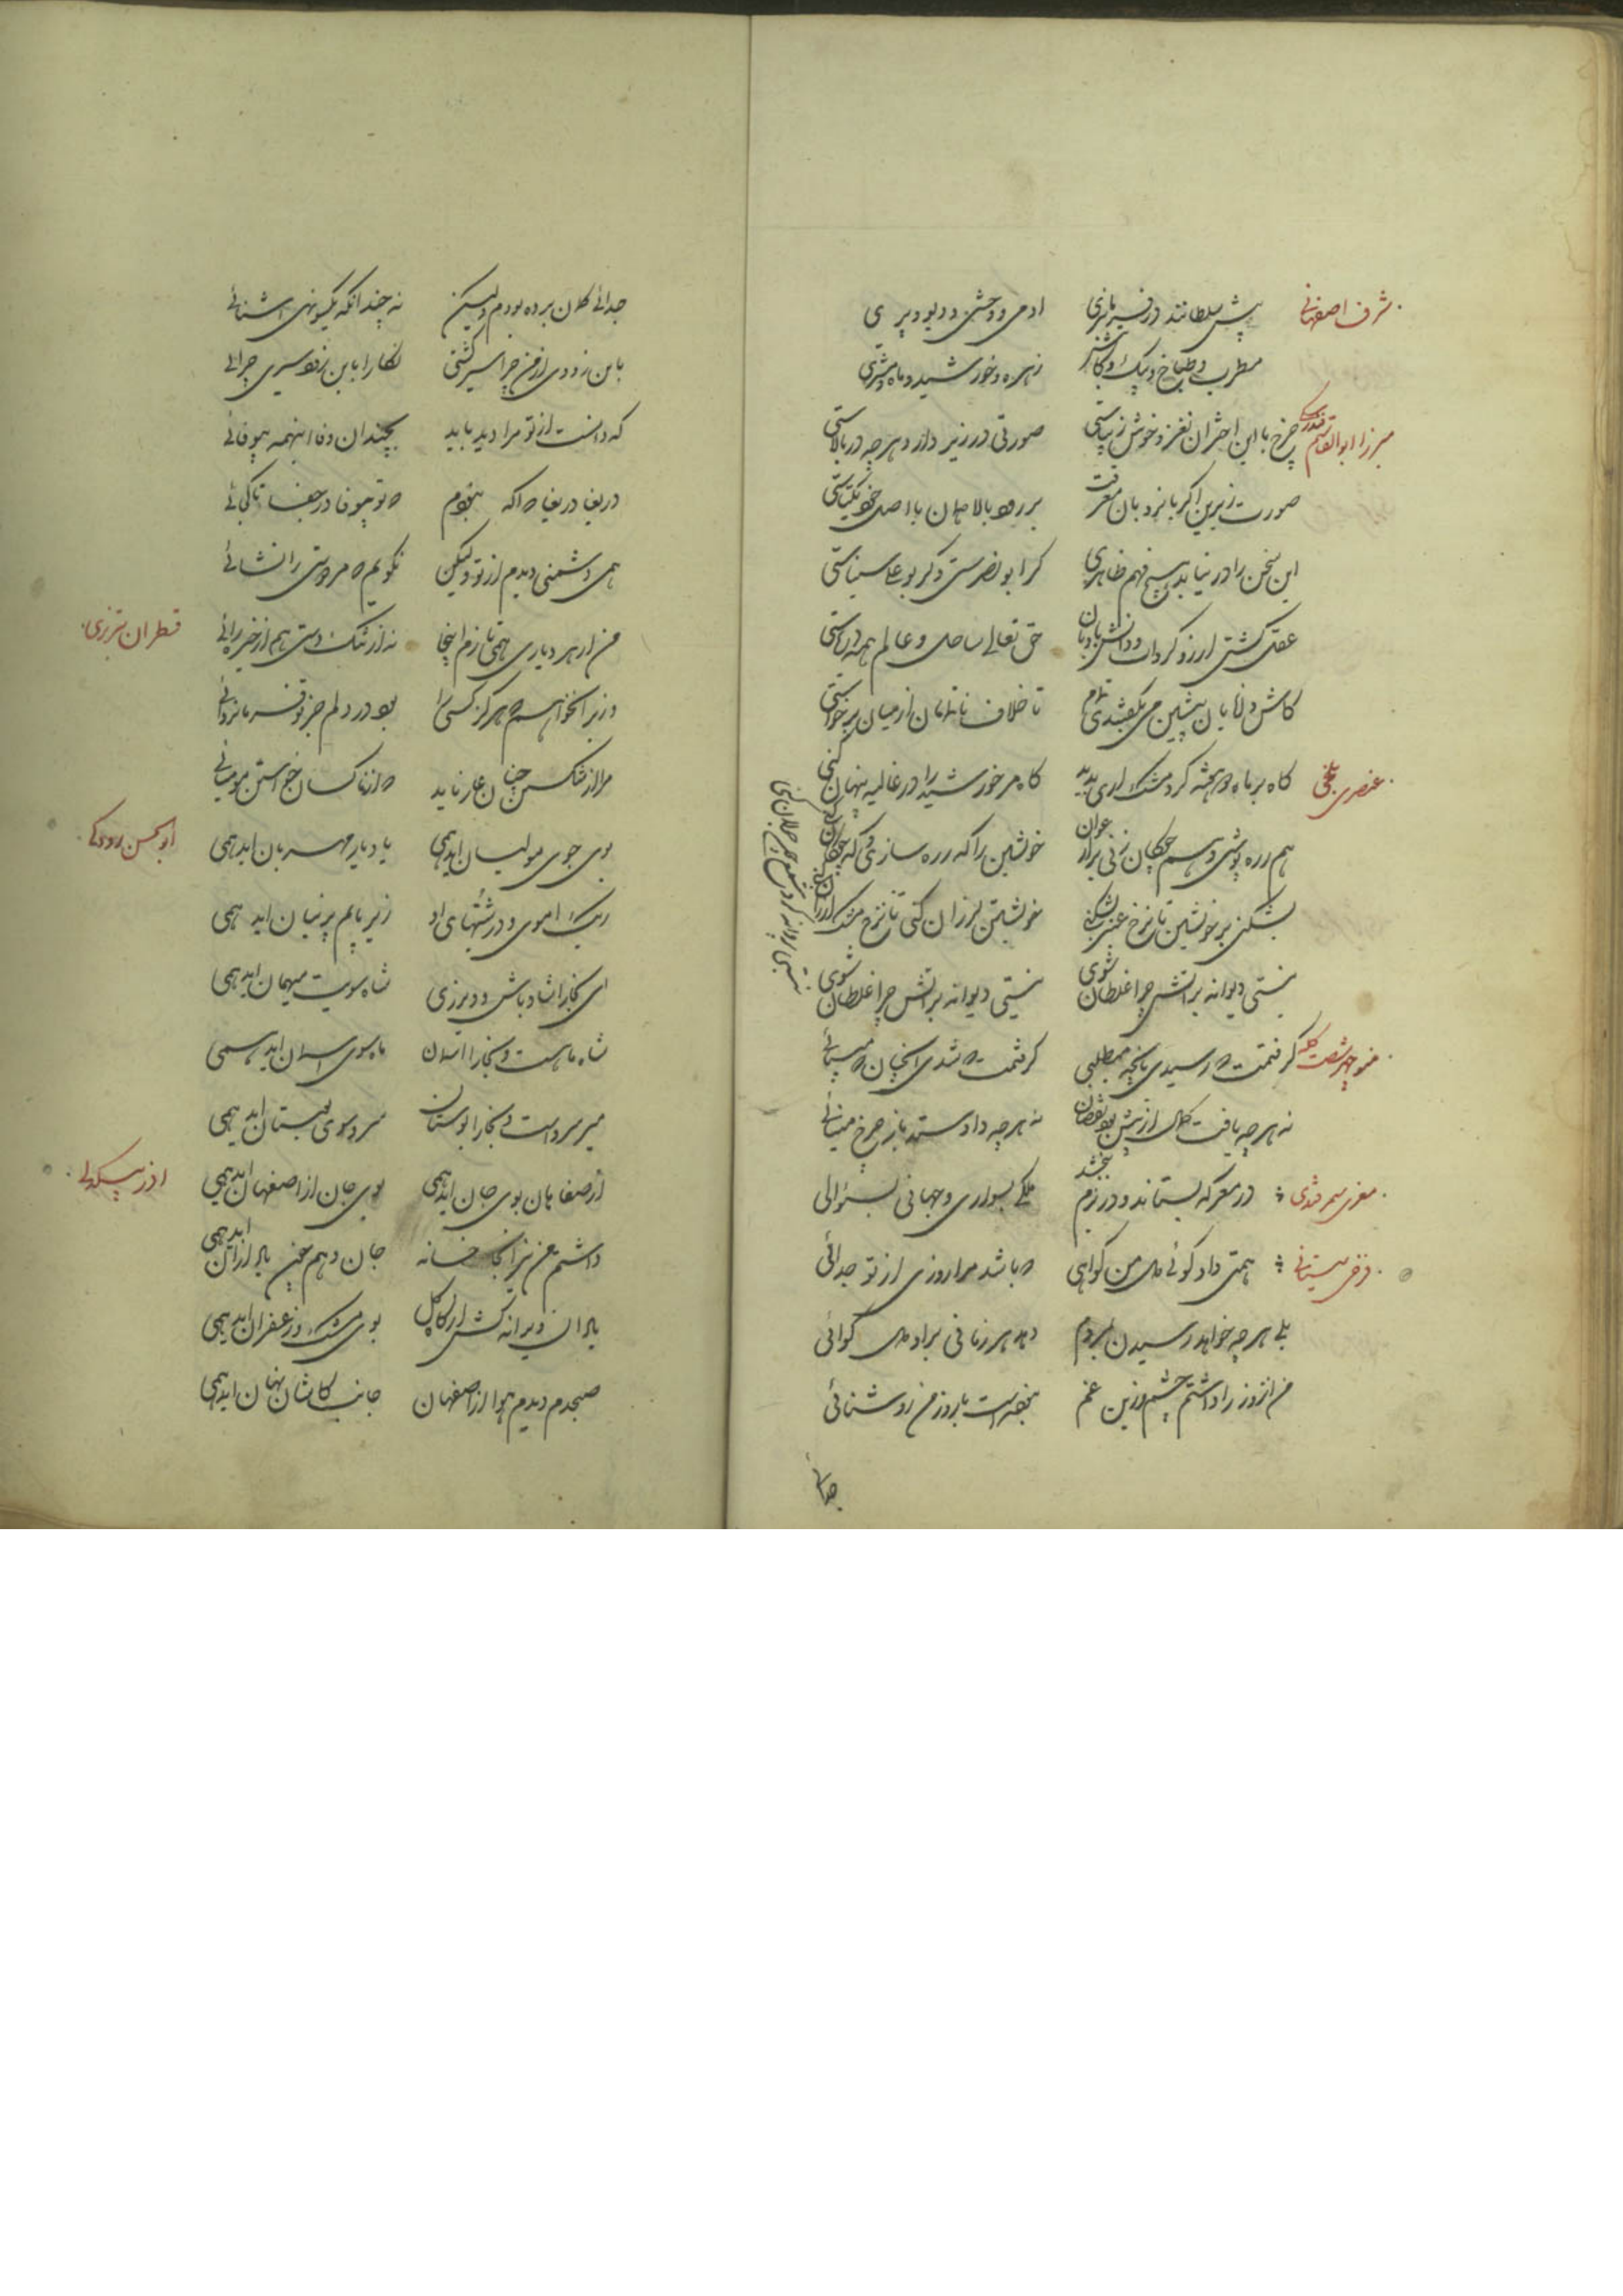 شرف اصفهانی
پیش سلطانند در فرمان بری آدمی و وحشی و دیو و پری
مطرب و طباخ و پیک و کاتبش زهره و خورشید و ماه و مشتری
میرزا ابوالقاسم فندرسکی
چرخ با این اختران نغز و خوش و زیباستی صورتی در زیر دارد هرچه در بالاستی
صورت زیرین اگر با نردبان معرفت بر رود بالا همان با اصل خود یکتاستی
این سخن را در نیابد هیچ فهم ظاهری گر ابونصرستی و گر بوعلی سیناستی
عقل کشتی آرزو گرداب و دانش بادبان حق تعالی ساحل و عالم همه دریاستی
کاش دانایان پیشین می بگفتندی تمام تا خلاف ناتمامان از میان برخواستی
عنصری بلخی
گاه بر ماه دو هفته گرد مشک آری پدید گاه مر خورشید را در غالیه پنهان کنی
هم زره پوشی و هم چوگان زنی بر ارغوان خویشتن را گه زره سازی و گه چوگان کنی
بشکنی بر خویشتن تا نرخ عنبر بشکنی خویشتن لرزان کنی تا نرخ مشک ارزان کنی
نیستی دیوانه بر آتش چرا غلطان شوی نیستی دیوانه بر آتش چرا غلطان شوی
نیستی پروانه گرد شمع چون جولان کنی
منوچهر شصت کله
گرفتمت که رسیدی بآنچه میطلبی گرفتمت که شدی آنچنان که میبائی
نه هرچه یافت کمال از پیش بود نقصان نه هرچه داد ستد باز چرخ مینائی
معزی سمرقندی
در معرکه بستاند و در بزم ببخشد ملکی بسواری و جهانی بسؤالی
فرخی سیستانی
همی داد گوئی دل من گواهی که باشد مرا روزی از تو جدائی
بلی هرچه خواهد رسیدن بمردم دهد هر زمانی بر او دل گوائی
من این روز را داشتم چشم وزین غم نبودست با روز من روشنائی
جدائی
جدائی گمان برده بودم ولیکن نه چندانکه یکسو نهی آشنائی
باین زودی از من چرا سیر گشتی نگارا باین زود سیری چرائی
که دانست از تو مرا دید باید بچندان وفا اینهمه بیوفائی
دریغا دریغا که آگه نبودم که تو بیوفا در جفا تا کجائی
همی دشمنی دیدم از تو ولیکن نگویم که مر دوستی را نشائی
قطران تبریزی
من از هر دیاری همی تازم اینجا نه از تنگ دستی هم از خیره رائی
مرا از شکستن چنان عار ناید که از ناکسان خواستن مومیائی
ابوالحسن رودکی
بوی جوی مولیان آید همی یاد یار مهربان آید همی
ریگ آموی و درشتیهای او زیر پایم پرنیان آید همی
ای بخارا شاد باش و دیر زی شاه سویت میهمان آید همی
شاه ماهست و بخارا آسمان ماه سوی آسمان آید همی
میر سرو است و بخارا بوستان سرو سوی بوستان آید همی
آذر بیگدلی
از صفاهان بوی جان آید همی بوی جان از اصفهان آید همی
صبحدم دیدم هوا از اصفهان جانب کاشان نهان آید همی